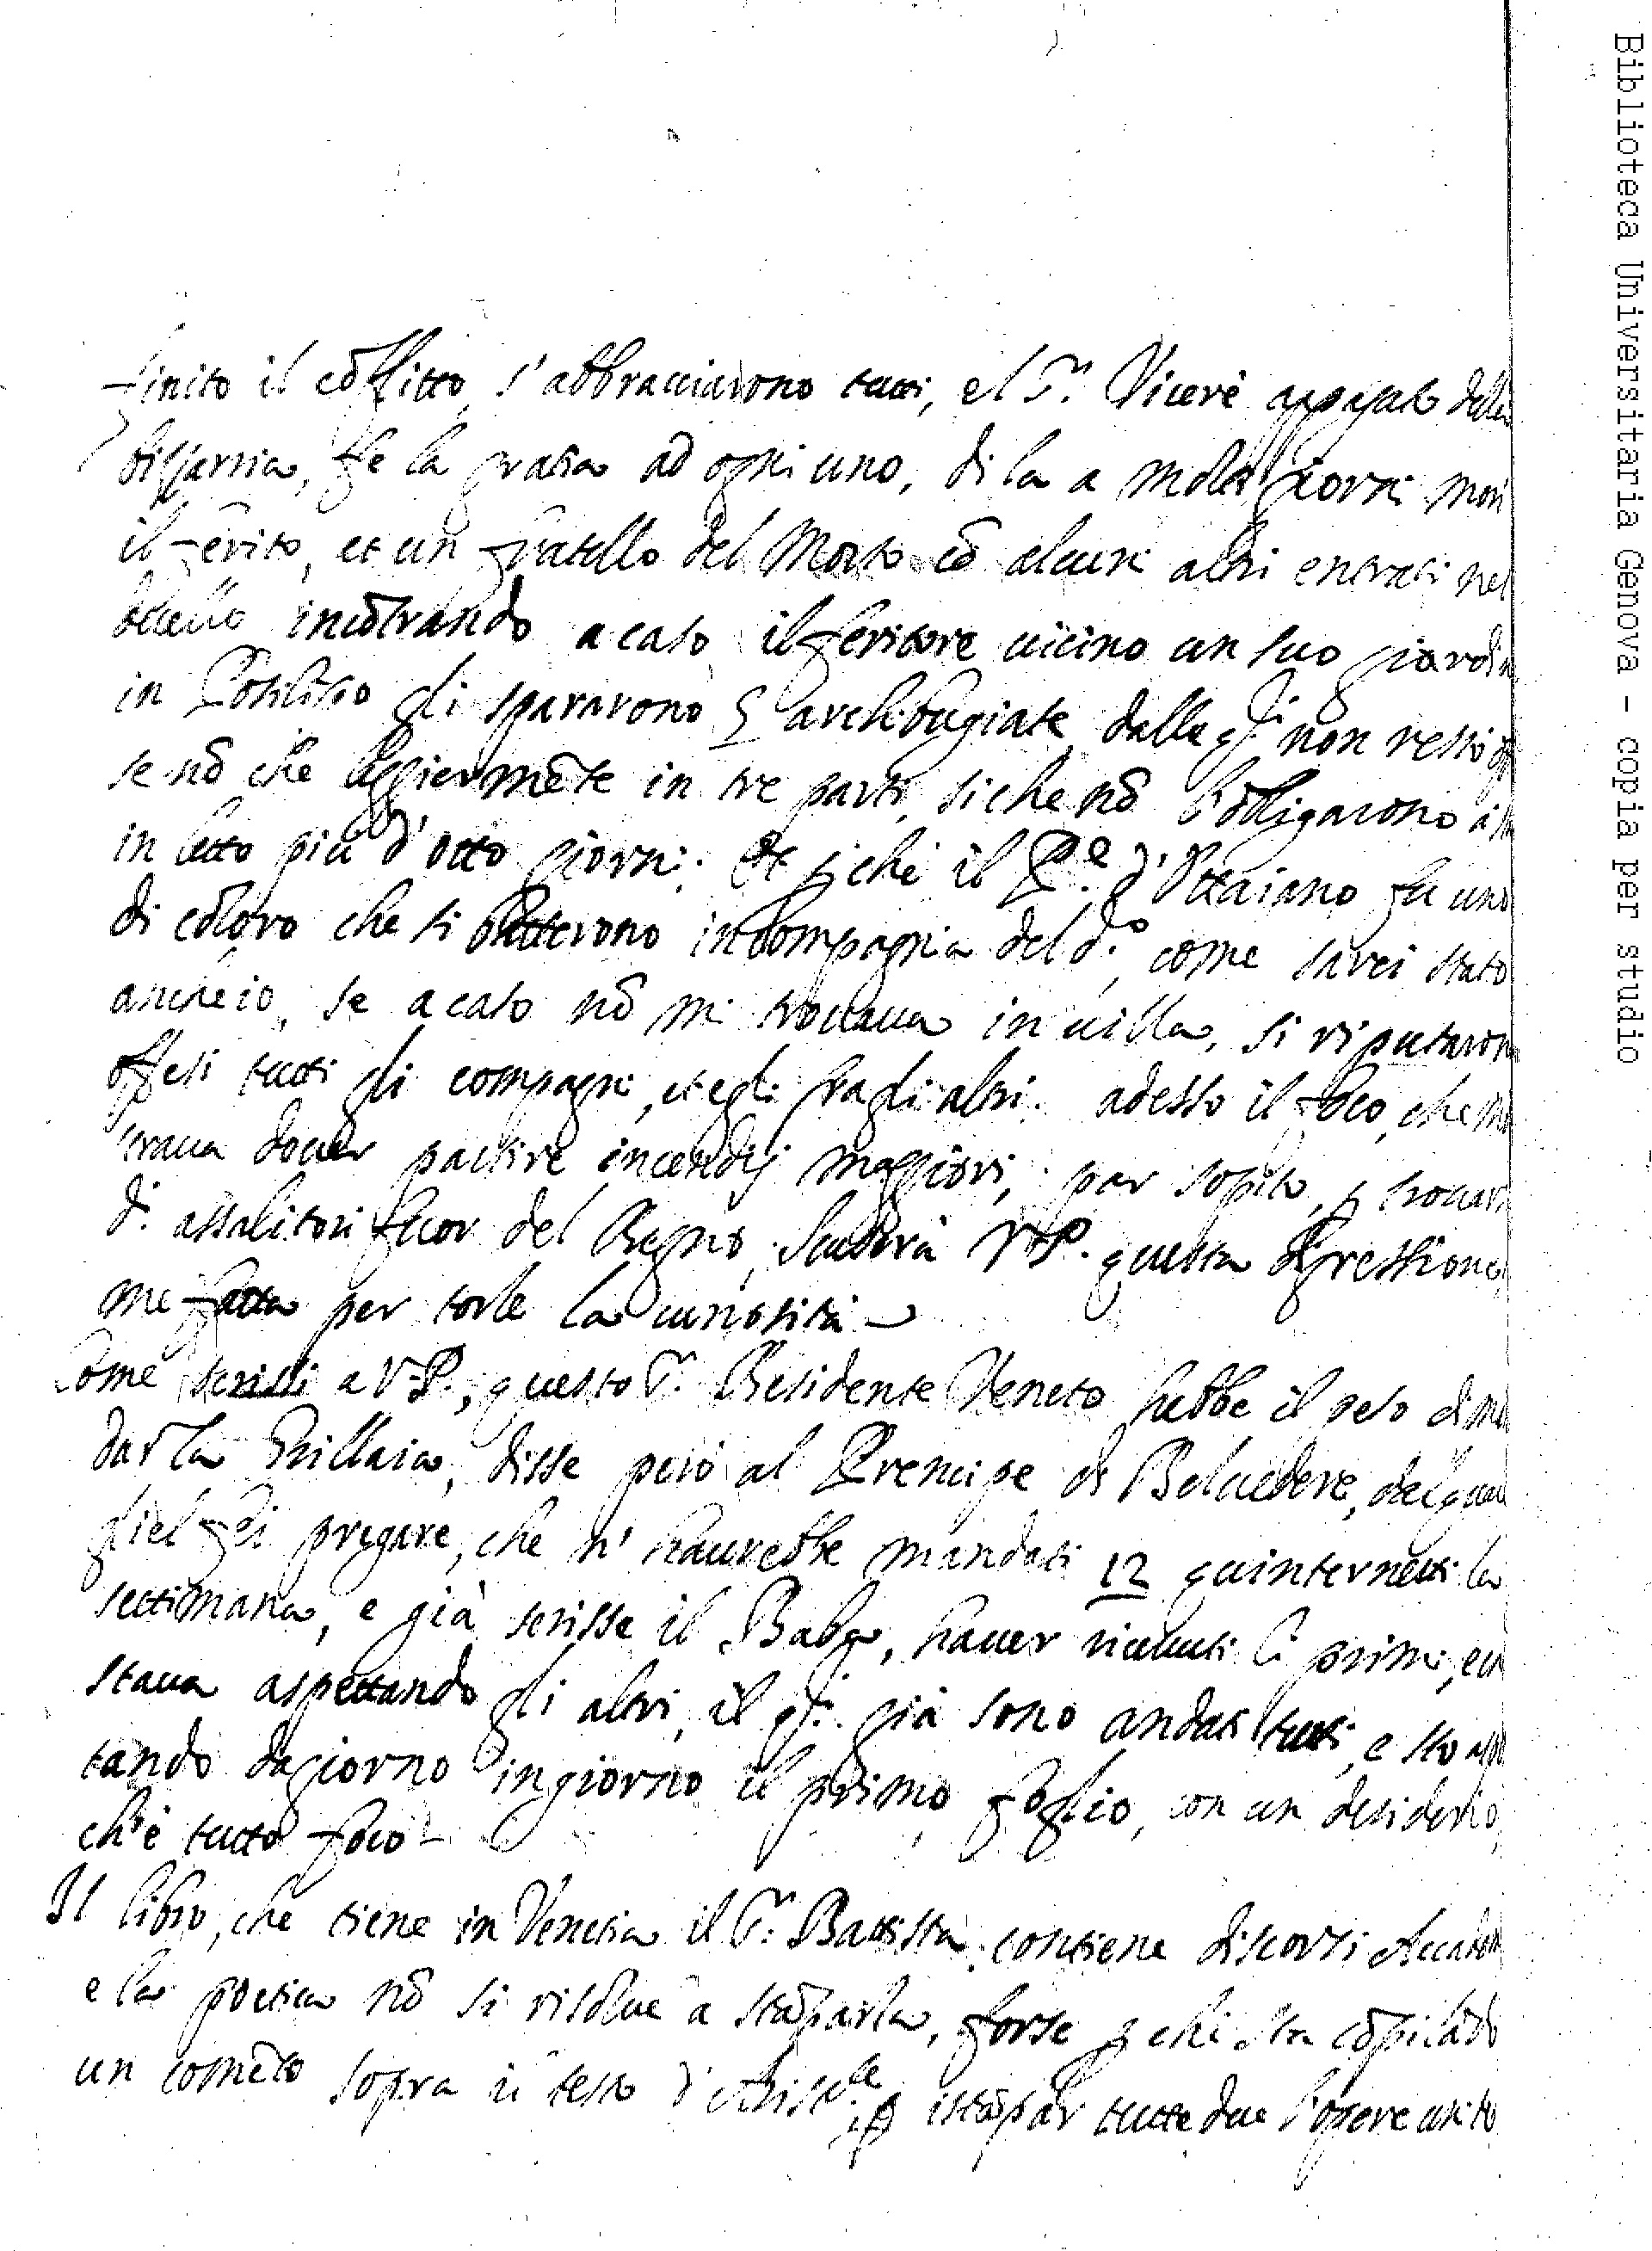 finito il cõflitto, s'abbracciarono tutti, el Sr. Vicerè appagato della
bizzarria, fe la gratia ad ogni uno, di la a molti giorni morì
il ferito, et un fratello del Morto cõ alcuni altri entrati nel
duello incõtrando a caso il feritore vicino un suo giardin
in Posilipo gli spararono 5 archibugiate dalle qli non restò
se nõ che leggiermẽte in tre parti, siche nõ l'obligarono à
in letto più d'otto giorni. Et p che il Pe. d'Ottaiano fu uno
di coloro che si batterono in compagnia del do. come sarei stato
anch'io, se a caso nõ mi trovava in villa, si riputaron
offesi tutti gli compagni, et egli fra gli altri. adesso il foco, che
trava dover partire incendij maggiori, par sopito, p
di assalitori fuor del Regno, Scuserà V.P. questa digressione
me fatta per torle la curiosità
Come scrissi a V.P., questo Sr. Residente Veneto hebbe il peso di
dar la Stillaia, disse però al Prencipe di Belvedere, dal qual
gliel fei pregare, che n'haurebbe mandati 12 quinternetti la
settimana, e già scrisse il Baba, haver ricevuti li primi, e
stava aspettando gli altri, il qli già sono andati tutti, e sto
tando da giorno in giorno il primo foglio, con un desiderio,
ch'è tutto foco
Il libro, che tiene in Venetia il Sr. Battista, contiene discorsi
e la poetica nõ si risolve à stãparla, forse p che sta cõpilãdo
un comẽto sopra il testo d'Aristle. p istãpar tutte due l'opere
Biblioteca Universitaria Genova - copia per studio